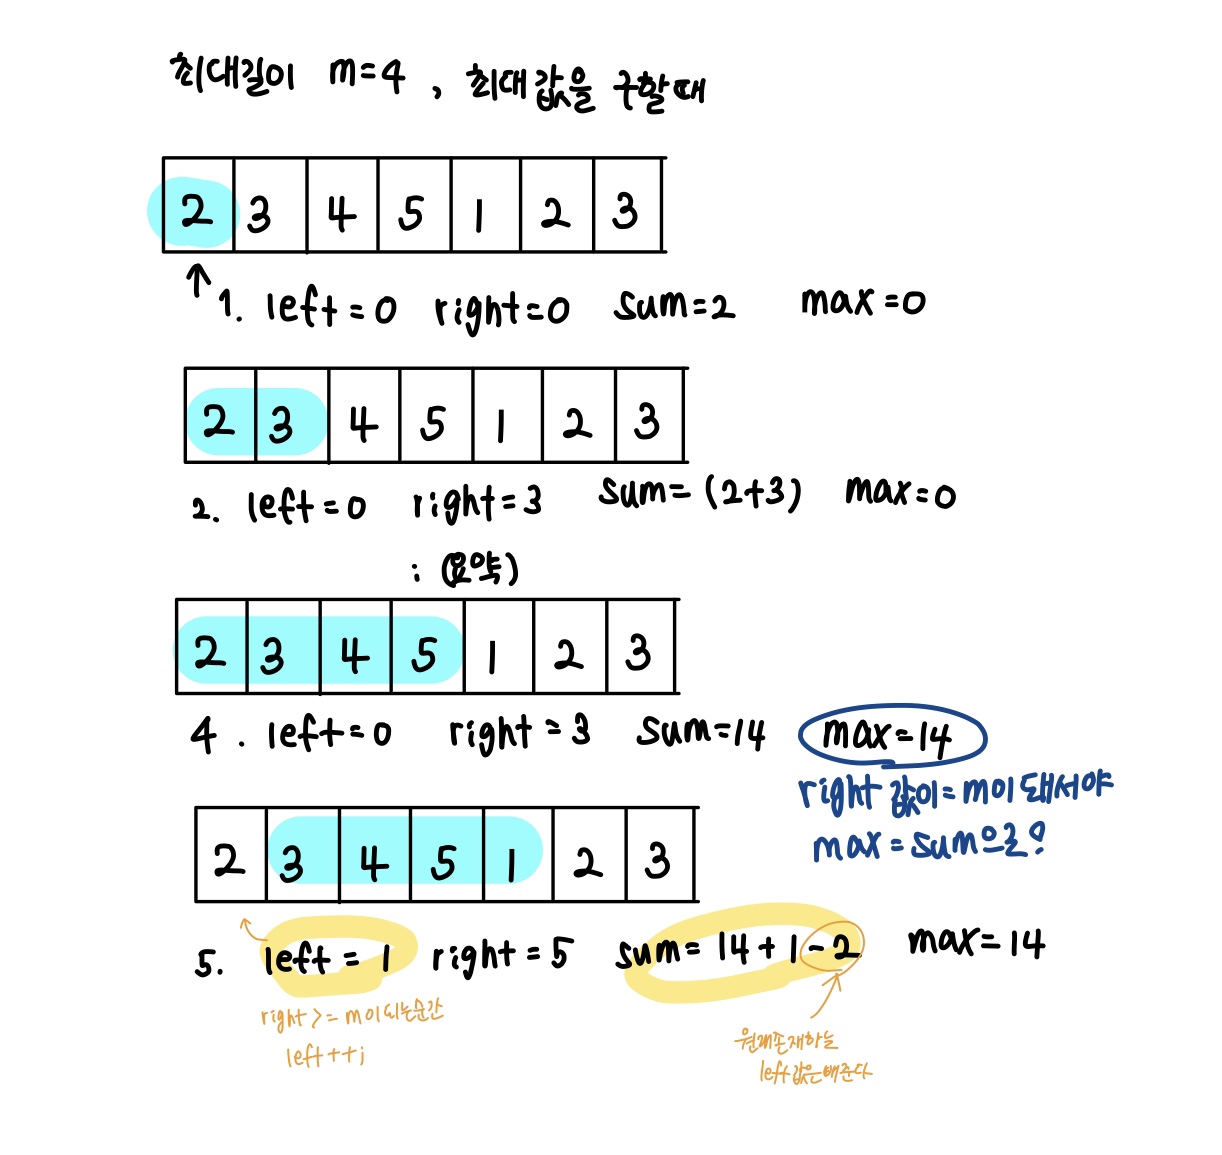 최대길이 m=4 , 최대값을 구할때
2 3 4 5 1 2 3
1. left=0 right=0 sum=2 max=0
2 3 4 5 1 2 3
2. left=0 right=3 sum=(2+3) max=0
: (요약)
2 3 4 5 1 2 3
4. left=0 right=3 sum=14 max=14
right 값이=m이 돼서야
max=sum으로?
2 3 4 5 1 2 3
5. left=1 right=5 sum=14+1-2 max=14
right>=m이되는순간
left++;
원래존재하는
left값은빼준다